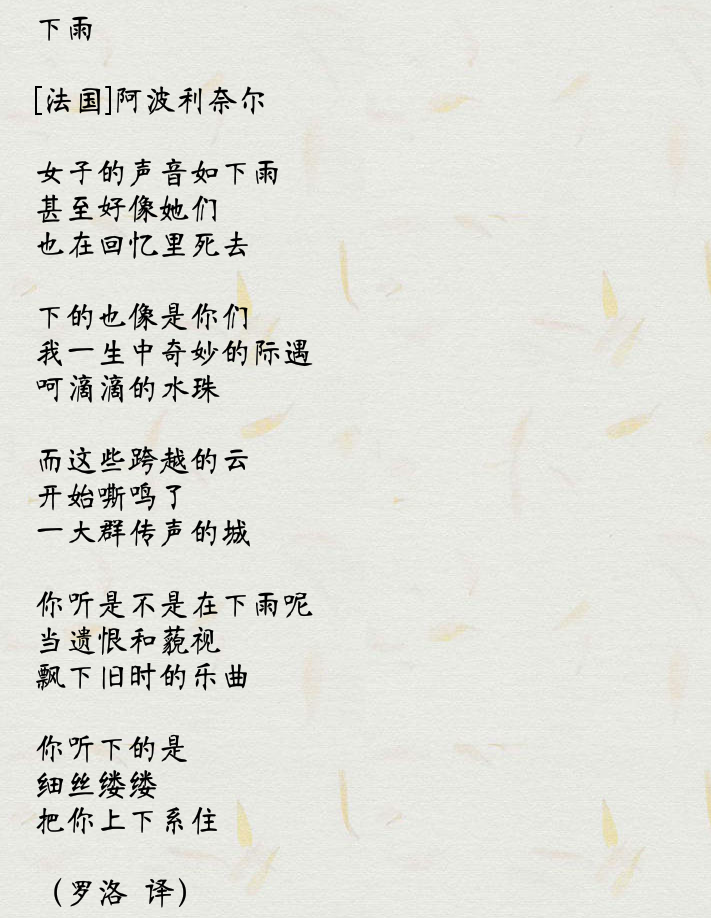 下雨
[法国]阿波利奈尔
女子的声音如下雨
甚至好像她们
也在回忆里死去
下的也像是你们
我一生中奇妙的际遇
呵滴滴的水珠
而这些跨越的云
开始嘶鸣了
一大群传声的城
你听是不是在下雨呢
当遗恨和藐视
飘下旧时的乐曲
你听下的是
细丝缕缕
把你上下系住
（罗洛 译）